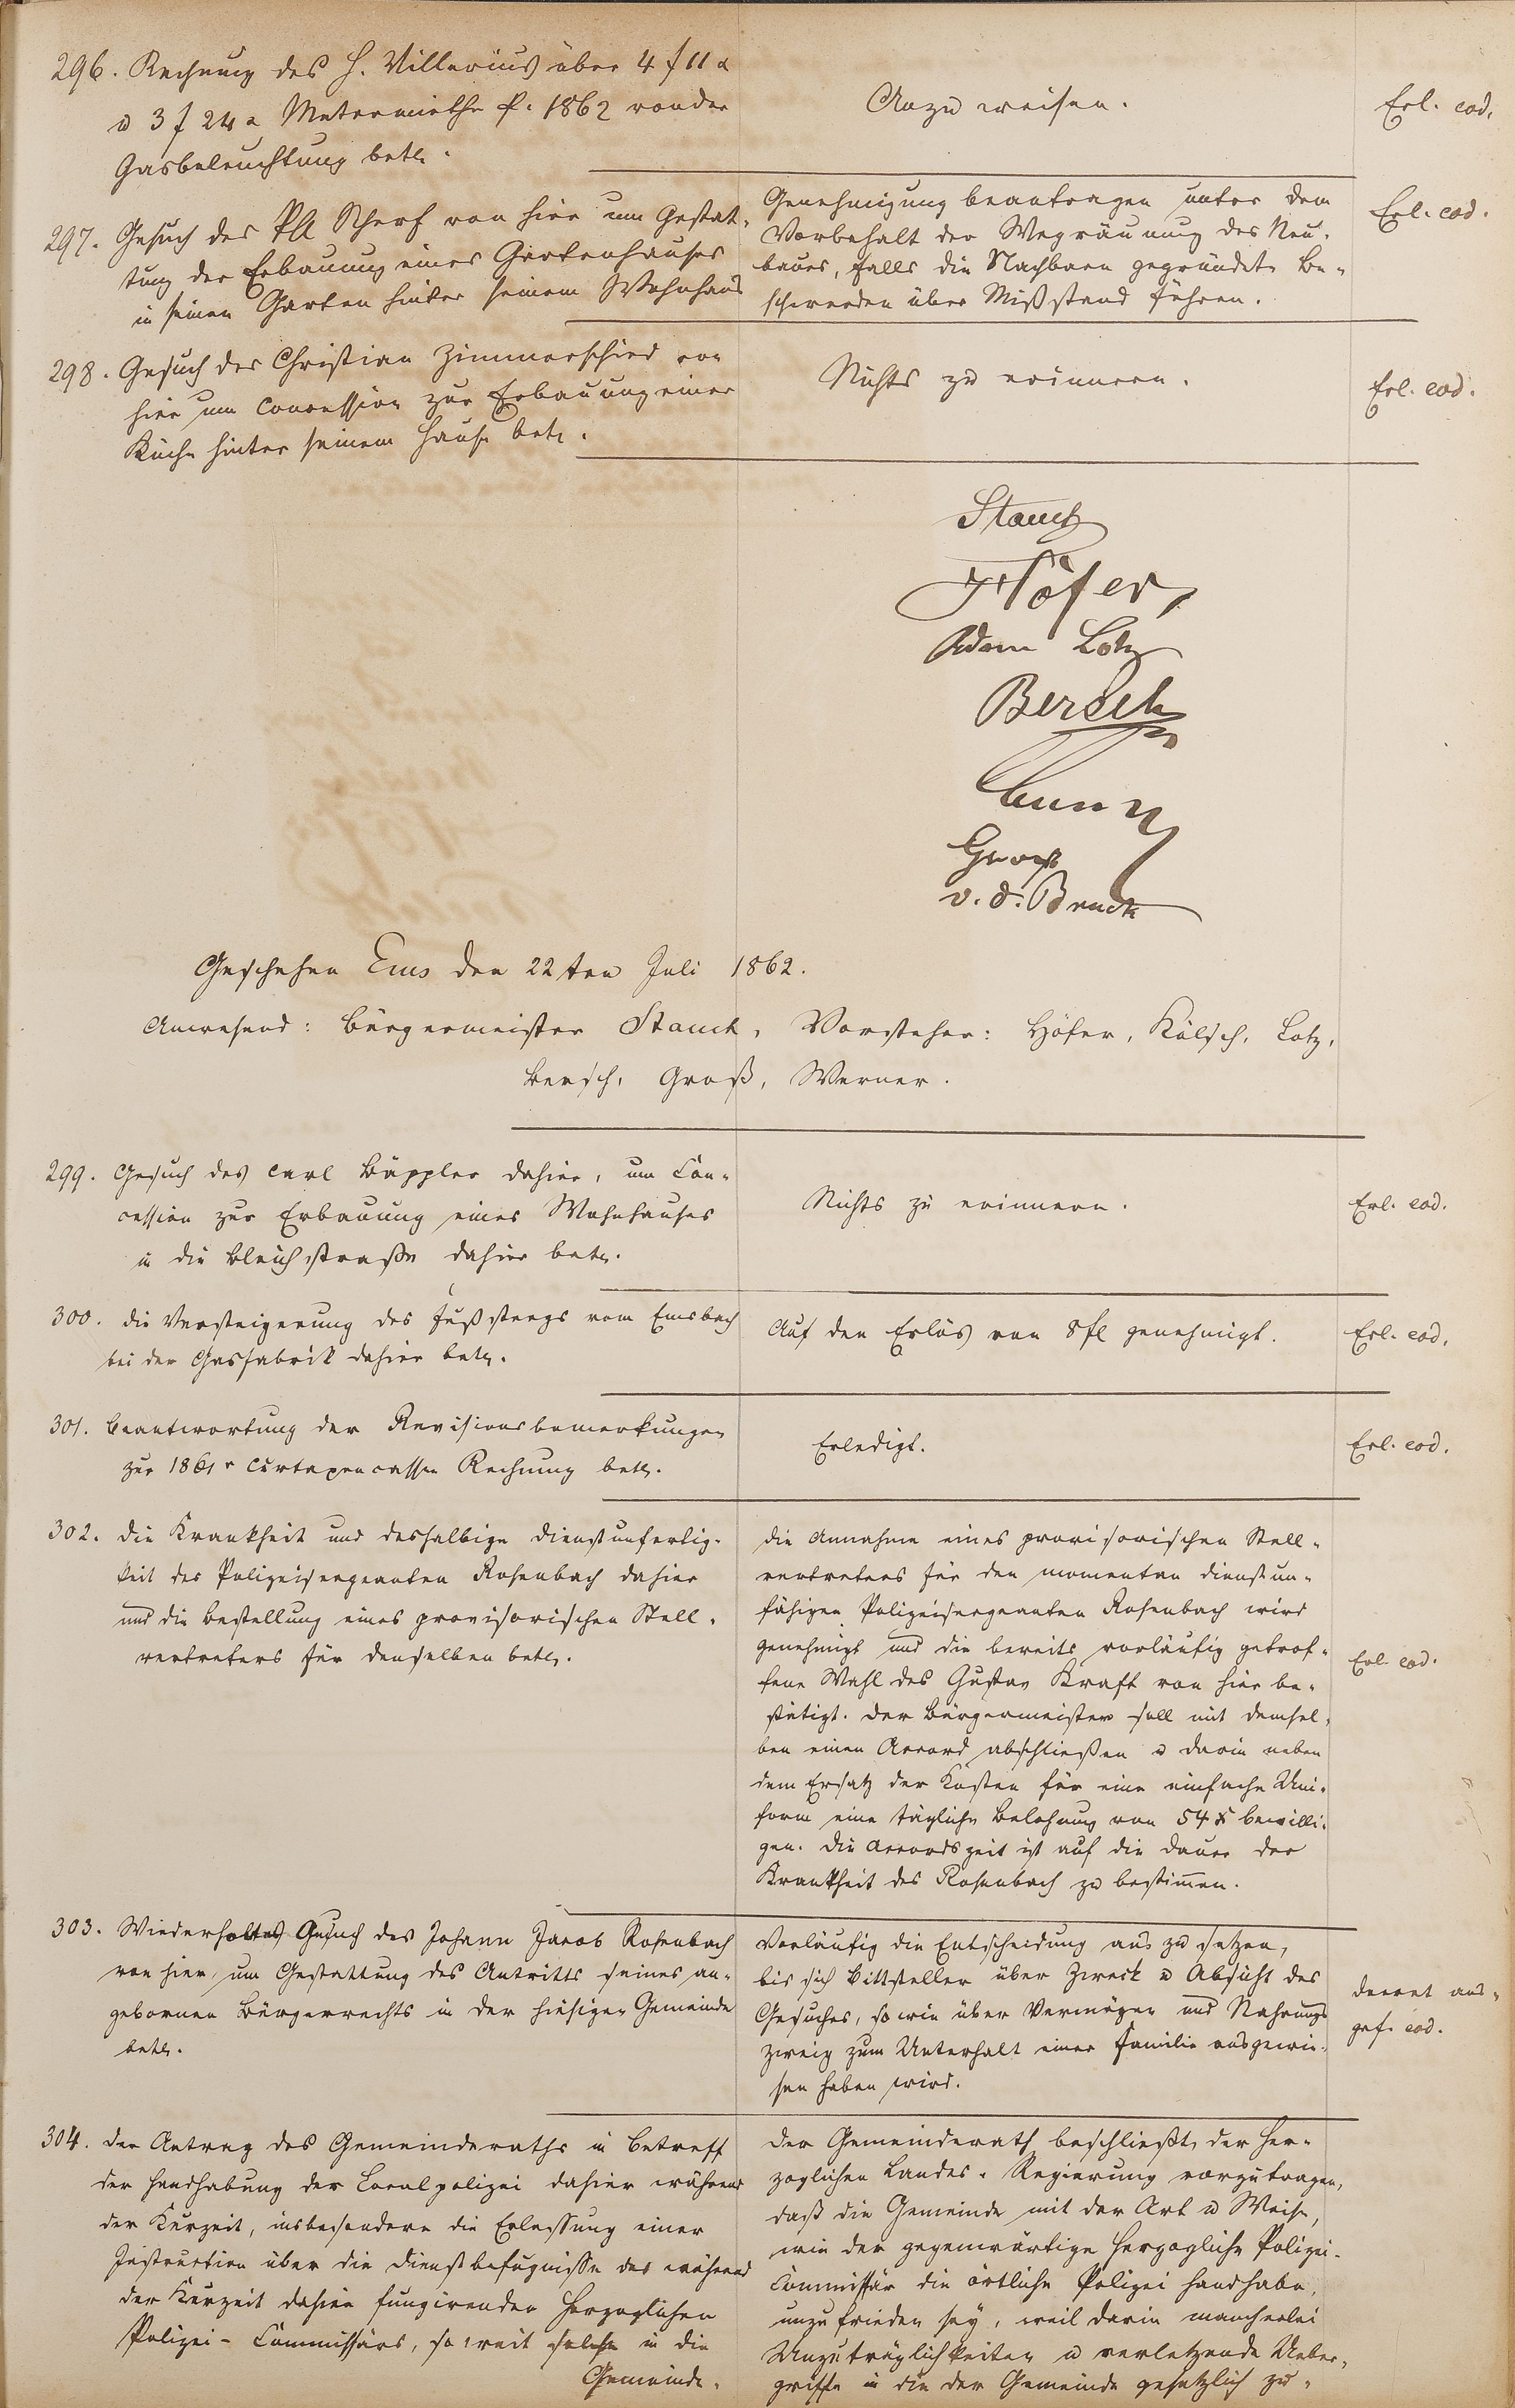 296. Rechnung des H. Villarius über 4 f 11 x
u 3 f 24 x Metermiethe p. 1862 von der
Gasbeleuchtung betr.
Anzuweisen.
Erl. eod.
297. Gesuch des Scherf von hier um Gestat-
tung der Erbauung eines Gartenhauses
in seinen Garten hinter seinem Wohnhaus
Genehmigung beantragen unter dem
Vorbehalt der Wegräumung des Neu-
baues, falls die Nachbarn gegründete Be-
schwerden über Mißstand führen.
Erl. eod.
298. Gesuch des Christian Zimmerschied von
hier um Concession zur Erbauung einer
Küche hinter seinem Hause betr.
Nichts zu erinnern.
Erl. eod.
Stauch
Höfer
Adam Lotz
Bersch
Groß
v. d. Bruck
Geschehen Ems den 22ten Juli 1862.
Anwesend: Bürgermeister Stauch, Vorsteher: Höfer, Külsch, Lotz,
Bersch, Groß, Werner.
299. Gesuch des Carl Bäppler dahier, um Con-
cession zur Erbauung eines Wohnhauses
in die Bleichstraße dahier betr.
Nichts zu erinnern.
Erl. eod.
300. die Versteigerung des Fußsteegs vom Emsbach
bei der Gasfabrik dahier betr.
Auf den Erlös von 8 fl genehmigt.
Erl. eod.
301. Beantwortung der Revisionsbemerkungen
zur 1861r Curtaxencassen Rechnung betr.
Erledigt.
Erl. eod.
302. die Krankheit und deshalbige Dienstunfertig-
keit des Polizeisergeanten Rosenbach dahier
und die Bestellung eines provisorischen Stell-
vertreters für denselben betr.
die Annahme eines provisorischen Stell-
vertreters für den momentan dienstun-
fähigen Polizeisergeanten Rosenbach wird
genehmigt und die bereits vorläufig getrof-
fene Wahl des Gustav Kraft von hier be-
stätigt. Der Bürgermeister soll mit demsel-
ben einen Accord abschließen u darin neben
dem Ersatz der Kosten für eine einfache Uni-
form eine tägliche Belohnung von 54 x bewilli-
gen. Die Accordszeit ist auf die Dauer der
Krankheit des Rosenbach zu bestimmen.
Erl. eod.
303. Wiederholtes Gesuch des Johann Jacob Rosenbach
von hier, um Gestattung des Antritts seines an-
gebornen Bürgerrechts in der hiesigen Gemeinde
betr.
Vorläufig die Entscheidung aus zu setzen,
bis sich Bittsteller über Zweck u Absicht des
Gesuches, sowie über Vermögen und Nahrungs
zweig zum Unterhalt einer Familie ausgewie-
sen haben wird.
Decret aus-
gef. eod.
304. Der Antrag des Gemeinderaths in Betreff
der Handhabung der Localpolizei dahier während
der Kurzeit, insbesondere die Erlassung einer
Instruction über die Dienstbefugnisse des während
der Kurzeit dahier fungirenden Herzoglichen
Polizei-Commissärs, so weit solche in die
Gemeinde-
Der Gemeinderath beschließt, der Her-
zoglichen Landes-Regierung vorzutragen,
daß die Gemeinde mit der Art u Weise,
wie der gegenwärtige Herzogliche Polizei-
Commissär die örtliche Polizei handhabe,
unzufrieden sey, weil darin mancherlei
Unzuträglichkeiten u verletzende Ueber-
griffe in die der Gemeinde gesetzlich zu-